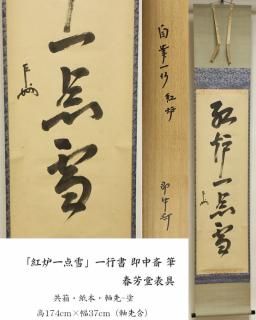 一点雪
自筆一行 紅炉
即中斎
紅炉一点雪
「紅炉一点雪」一行書 即中斎 筆
春芳堂表具
共箱・紙本・軸先-塗
高174cm×幅37cm(軸先含)